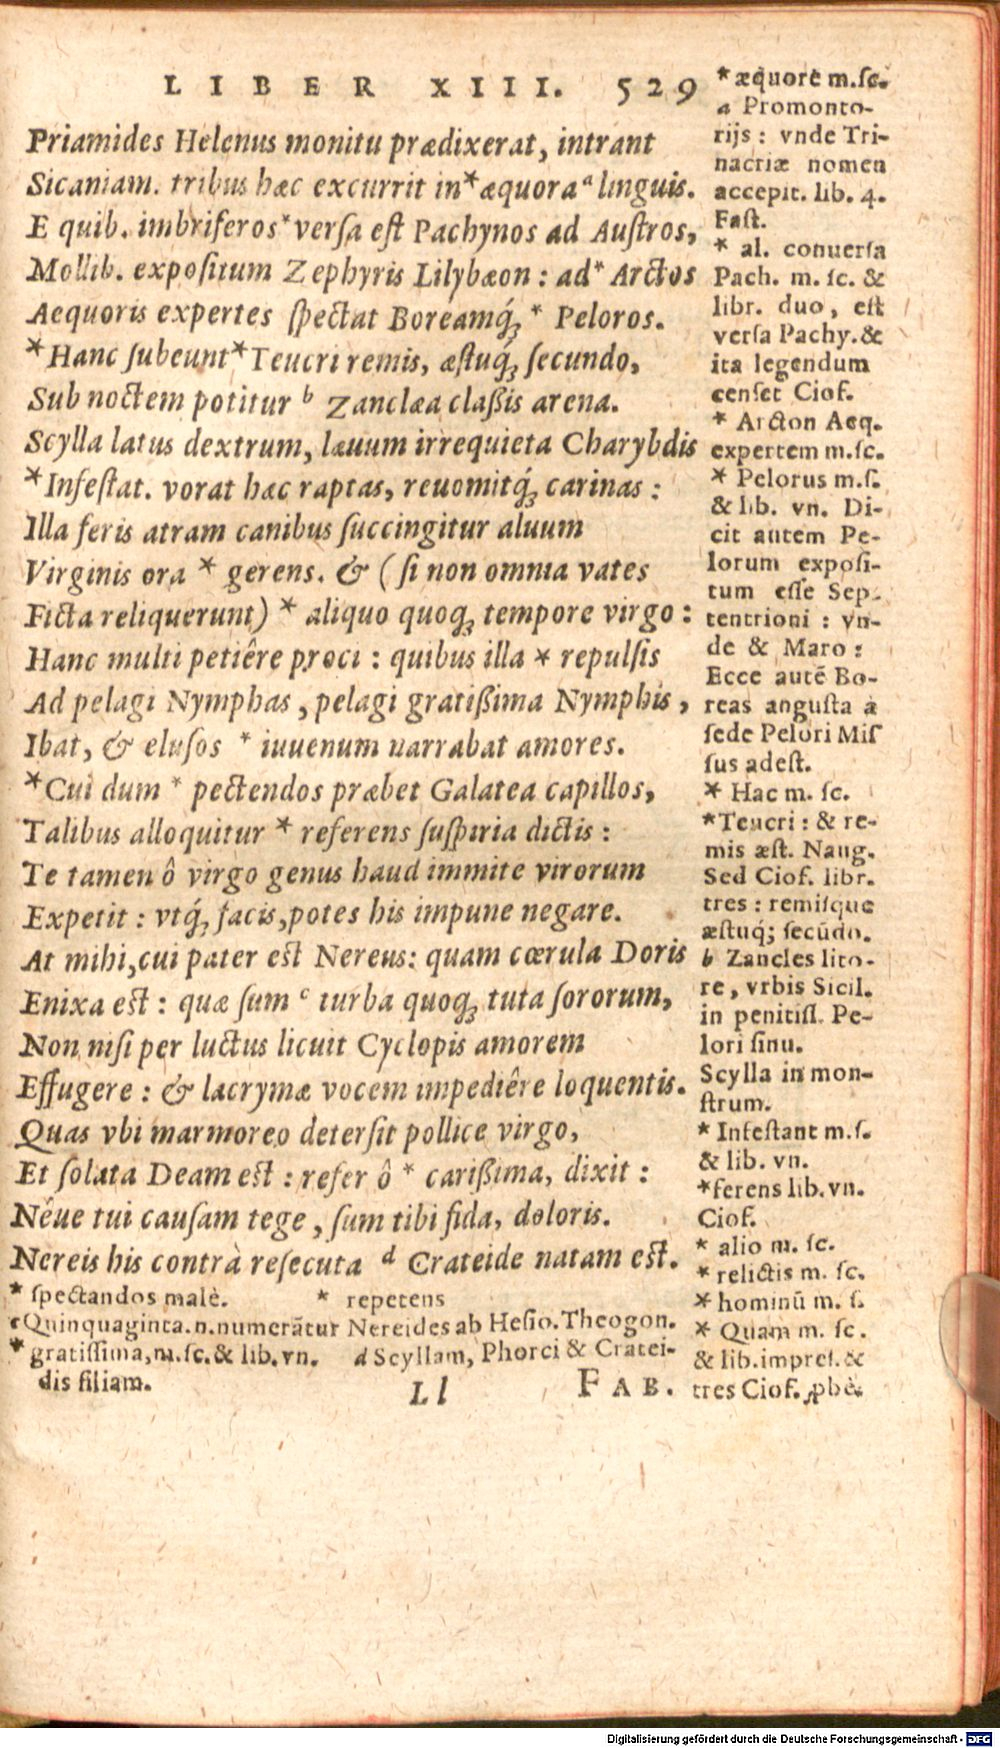 LIBER XIII. 529
Priamides Helenus monitu prædixerat, intrant
Sicaniam. tribus hæc excurrit in * æquora a linguis.
E quib. imbriferos * versa est Pachynos ad Austros,
Mollib. expositum Zephyris Lilybæon: ad * Arctos
Aequoris expertes spectat Boreamq́; * Peloros.
* Hanc subeunt * Teucri remis, æstuq́; secundo,
Sub noctem potitur b Zanclæa claßis arena.
Scylla latus dextrum, læuum irrequieta Charybdis
* Infestat. vorat hæc raptas, reuomitq́; carinas:
Illa feris atram canibus succingitur aluum
Virginis ora * gerens. & (si non omnia vates
Ficta reliquerunt) * aliquo quoq; tempore virgo:
Hanc multi petiêre proci: quibus illa * repulsis
Ad pelagi Nymphas, pelagi gratißima Nymphis,
Ibat, & elusos * iuuenum narrabat amores.
* Cui dum * pectendos præbet Galatea capillos,
Talibus alloquitur * referens suspiria dictis:
Te tamen ô virgo genus haud immite virorum
Expetit: vtq́; facis, potes his impune negare.
At mihi, cui pater est Nereus: quam cœrula Doris
Enixa est: quæ sum c turba quoq; tuta sororum,
Non nisi per luctus licuit Cyclopis amorem
Effugere: & lacrymæ vocem impediêre loquentis.
Quas vbi marmoreo detersit pollice virgo,
Et solata Deam est: refer ô * carißima, dixit:
Nêue tui causam tege, sum tibi fida, doloris.
Nereis his contrà resecuta d Crateide natam est.
* spectandos malè. * repetens
c Quinquaginta.n.numerātur Nereides ab Hesio. Theogon.
* gratissima, m.sc. & lib. vn. d Scyllam, Phorci & Cratei-
dis filiam.
Ll FAB.
* æquore m.sc.
a Promonto-
rijs: vnde Tri-
nacriæ nomen
accepit. lib. 4.
Fast.
* al. conuersa
Pach. m. sc. &
libr. duo, est
versa Pachy. &
ita legendum
censet Ciof.
* Arcton Aeq.
expertem m.sc.
* Pelorus m.s.
& lib. vn. Di-
cit autem Pe-
lorum exposi-
tum esse Sep-
tentrioni: vn-
de & Maro:
Ecce autē Bo-
reas angusta à
sede Pelori Mis
sus adest.
* Hac m. sc.
* Teucri: & re-
mis æst. Naug.
Sed Ciof. libr.
tres: remisque
æstuq́; secūdo.
b Zancles lito-
re, vrbis Sicil.
in penitiss. Pe-
lori sinu.
Scylla in mon-
strum.
* Infestant m.s.
& lib. vn.
* ferens lib. vn.
Ciof.
* alio m. sc.
* relictis m. sc.
* hominū m. s.
* Quam m. sc.
& lib. impres. &
tres Ciof. phè.
Digitalisierung gefördert durch die Deutsche Forschungsgemeinschaft - DFG